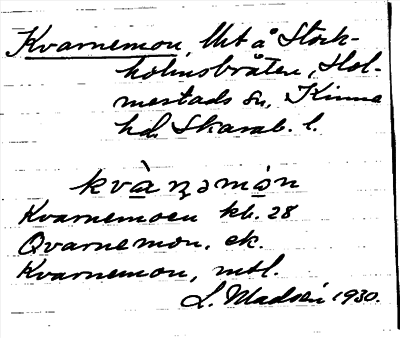 Kvarnemon, Uit å Stock-
holmsbråten, Hol-
mestads Sn, Kinne
hd. Skarab. l.
kvàn̥əmȯ́n
Kvarnemoen kb. 28
Qvarnemon, ek.
Kvarnemon, mtl.
L. Madsén 1930.